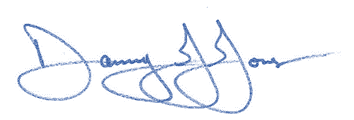 Danny G Jones